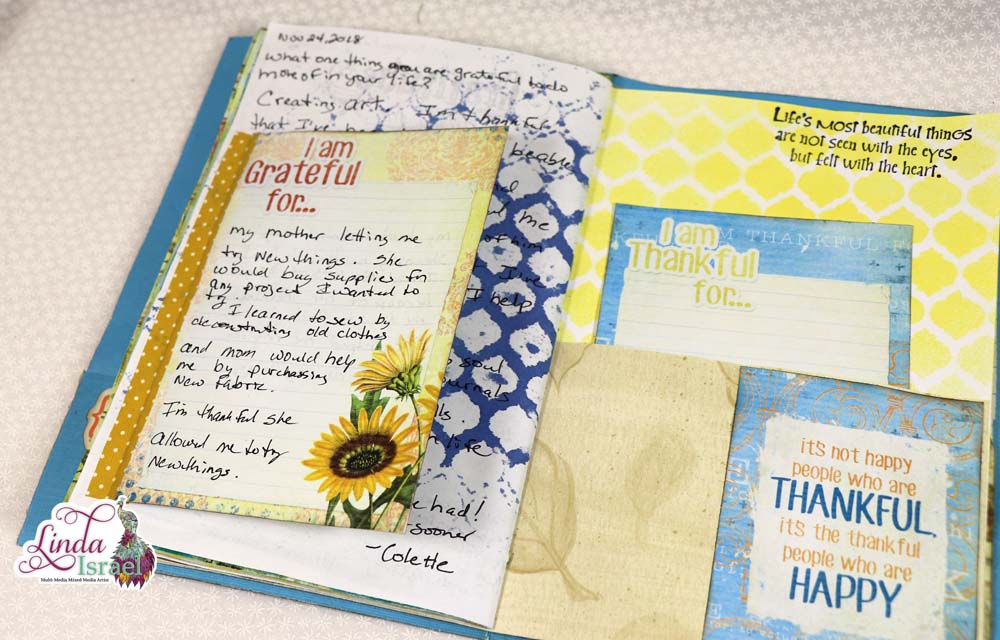 Nov 24, 2018
What one thing you are grateful to do
more of in your life?
Creating art. I'm thankful
that I've
I am
Grateful
for...
my mother letting me
try New things. She
would buy supplies for
any project I wanted to
try.
I learned to sew by
deconstructing old clothes
and mom would help
me by purchasing
New Fabric.
I'm thankful she
allowed me to try
New things.
me
of him
I've
I help
soul
journals
life
had!
sooner
-Colette
Life's most beautiful things
are not seen with the eyes,
but felt with the heart.
I AM THANKFUL F
I am
Thankful
for...
it's not happy
people who are
THANKFUL,
it's the thankful
people who are
HAPPY
Linda
Israel
Multi-Media Mixed Media Artist